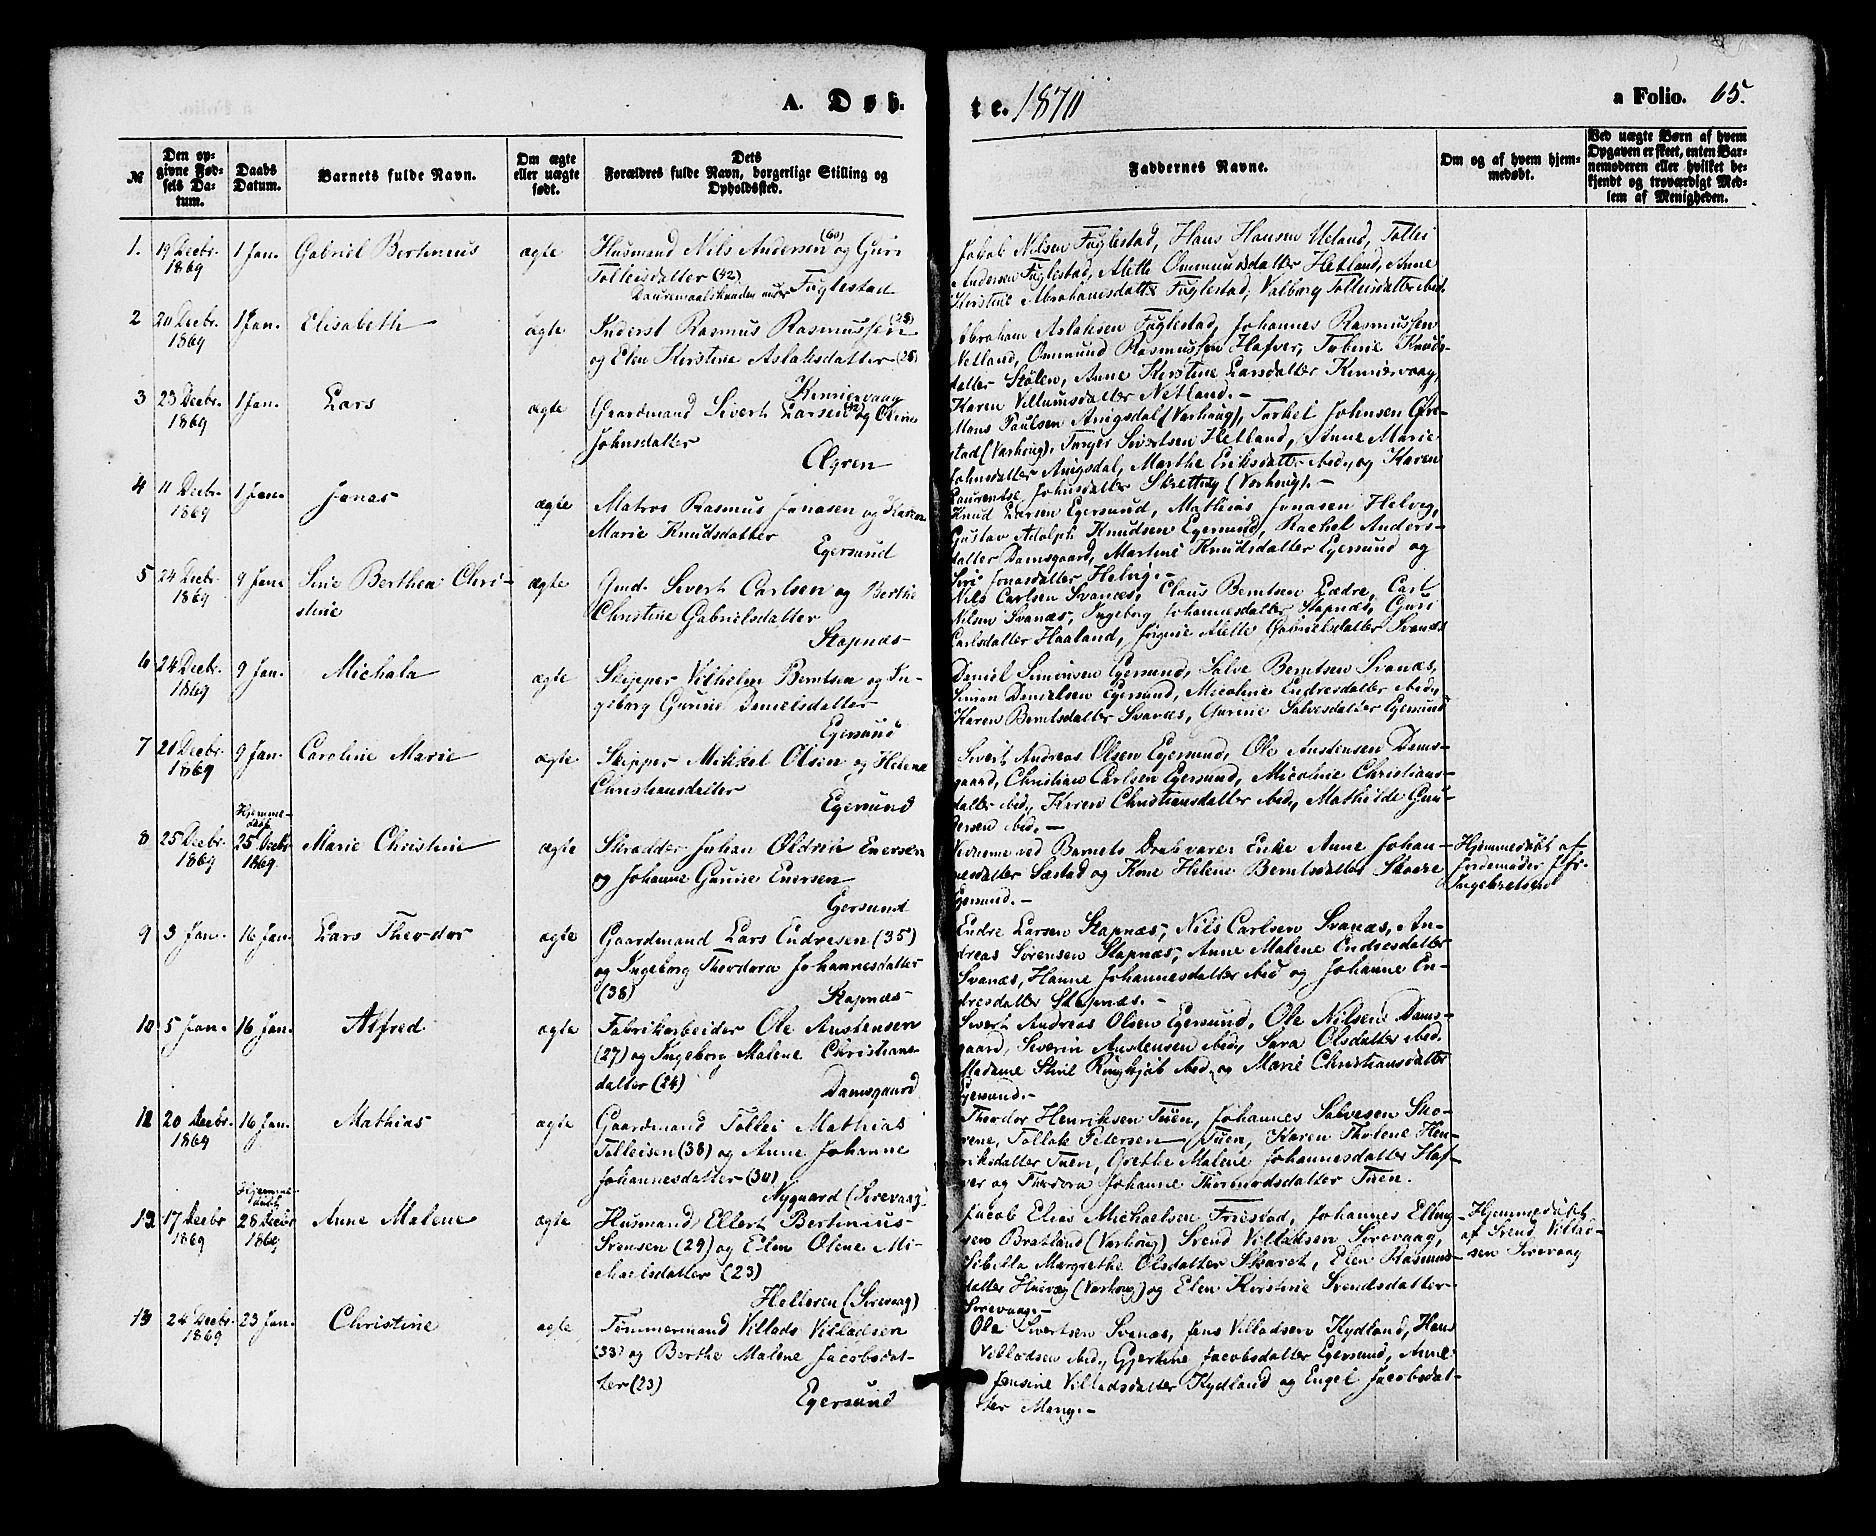 A. Døb- te. 1870
a Folio. 65.
№
Den op-
givne Fød-
sels Da-
tum.
Daabs
Datum.
Barnets fulde Navn.
Om ægte
eller uægte
født.
Dets
Forældres fulde Navn, borgerlige Stilling og
Opholdssted.
Faddernes Navne.
Om og af hvem hjem-
medøbt.
Ved uægte Børn af hvem
Opgaven er skeet, enten Bar-
nemoderen eller hvilket be-
kjendt og troværdigt Med-
lem af Menigheden.
1. 19 Decbr. 1869
1 Jan.
Gabriel Bertinius
ægte
Husmand Nils Andersen (60) og Guri
Tolleisdatter (42)
Fuglestad
Jakob Nilsen Fuglestad, Hans Hansen Ueland, Tollei
Andersen Fuglestad, Alette Ommundsdatter Hetland, Anne
Kirstine Abrahamsdatter Fuglestad, Valborg Tolleisdatter ibid.
2 20 Decbr. 1869
1 Jan.
Elisabeth
ægte
Inderst Rasmus Rasmussen (28)
og Elen Kirstine Aslaksdatter (28)
Kinnervaag
Abraham Aslaksen Fuglestad, Johannes Rasmussen
Netland, Ommund Rasmussen Hafver, Tobine Knuds-
datter Stølen, Anne Kirstine Larsdatter Kinnervaag,
Karen Villumsdatter Netland.-
3 23 Decbr. 1869
1 Jan.
Lars
ægte
Gaardmand Sivert Larsen (42) og Oline
Johnsdatter
Ølgren
Mons Paulsen Anigsdal (Varhoug), Torkel Johnsen Øre-
stad (Varhoug), Torger Sivertsen Hetland, Anne Marie
Johnsdatter Anigsdal, Marthe Eriksdatter ibid, og Karen
Laurentse Johnsdatter Skretting (Varhoug).-
4 11 Decbr. 1869
1 Jan.
Jonas
ægte
Matros Rasmus Jonasen og Karen
Marie Knudsdatter
Egersund
Knud Larsen Egersund, Mathias Jonasen Helvig,
Gustav Adolph Knudsen Egersund, Rachel Anders-
datter Damsgaard, Martine Knudsdatter Egersund og
Siri Jonasdatter Helvig.-
5 24 Decbr 1869
9 Jan.
Sine Berthea Chri-
stine
ægte
Gmd. Sivert Carlsen og Berthe
Christine Gabrielsdatter
Stapnæs
Nils Carlsen Svanæs, Claus Berntsen Eedre, Carl
Nilsen Svanæs, Ingeborg Johannesdatter Stapnæs, Guri
Carlsdatter Haaland, Jørgine Alette Gabrielsdatter Svanæs
6 24 Decbr. 1869
9 Jan.
Michala
ægte
Skipper Vilhelm Berntsen og In-
geborg Gurine Danielsdatter
Egersund
Daniel Simonsen Egersund, Salve Berntsen Svanæs,
Simon Danielsen Egersund, Micoline Endresdatter ibid,
Karen Berntsdatter Svanæs, Gurine Salvesdatter Egersund
7 21 Decbr. 1869
9 Jan.
Caroline Marie
ægte
Skipper Mikkel Olsen og Helene
Christiansdatter
Egersund
Sivert Andreas Olsen Egersund, Ole Austensen Dams-
gaard, Christian Carlsen Egersund, Micoline Christians-
datter ibid, Karen Christiansdatter ibid, Mathilde Gun-
dersen ibid.-
8 25 Decbr. 1869
Hjemme-
døbt
25 Decbr
1869.
Marie Christine
ægte
Skrædder Johan Oldrin Enersen
og Johanne Gurine Enersen
Egersund
Vidnerne ved Barnets Daab varer Enke Anne Johan-
nesdatter Sæstad og Kone Helene Berntsdatter Skaare
Egersund.-
Hjemmedøbt af
Jordemoder Jfr.
Ingebretsen
9 3 Jan.
16 Jan.
Lars Theodor
ægte
Gaardmand Lars Endresen (35)
og Ingeborg Theodora Johannesdatter
(38) Stapnæs
Endre Larsen Stapnæs, Nils Carlsen Svanæs, An-
dreas Sørensen Stapnæs, Anne Malene Endresdatter
Svanæs, Hanne Johannesdatter ibid og Johanne En-
dresdatter Stapnæs.-
10 5 Jan.
16 Jan.
Alfred
ægte
Fabrikarbeider Ole Austensen
(27) og Ingeborg Malene Christians-
datter (24)
Damsgaard
Sivert Andreas Olsen Egersund, Ole Nilsen Dams-
gaard, Severin Austensen ibid, Sara Olsdatter ibid.
Madame Sivil Ringkjøb ibid, og Marie Christiansdatter
Egersund.-
11 20 Decbr. 1869
16 Jan.
Mathias
ægte
Gaardmand Tollei Mathias
Tolleisen (38) og Anne Johanne
Johannesdatter (30)
Nygaard (Sirevaag)
Theodor Henriksen Tuen, Johannes Salvesen Sko-
rene, Tollak Petersen Tuen, Karen Tholene Hen-
riksdatter Tuen, Grethe Malene Johannesdatter Haf-
ver og Theodora Johanne Thormodsdatter Tuen.
12 17 Decbr 1869
Hjemme-
døbt
28 Decbr
1869
Anne Malene
ægte
Husmand Ellert Bertinius
Svensen (29) og Elen Olene Mi-
chaelsdatter (23)
Helleren (Sirevaag)
Jacob Elias Michaelsen Friestad, Johannes Elling-
sen Bratland (Varhoug) Svend Villadsen Sirevaag,
Sibilla Margrethe Olsdatter Skaret, Elen Rasmus-
datter (Varhoug) og Elen Kirstine Svendsdatter
Sirevaag.-
Hjemmedøbt
af Svend Villad-
sen Sirevaag
13 24 Decbr. 1869
23 Jan.
Christine
ægte
Tømmermand Villads Villadsen
(33) og Berthe Malene Jacobsdat-
ter (23)
Egersund
Ole Sivertsen Svanæs, Jens Villadsen Kydland, Hans
Villadsen ibid, Gjertine Jacobsdatter Egersund, Anne
Jensine Villadsdatter Kydland og Engel Jacobsdat-
ter Mong.-